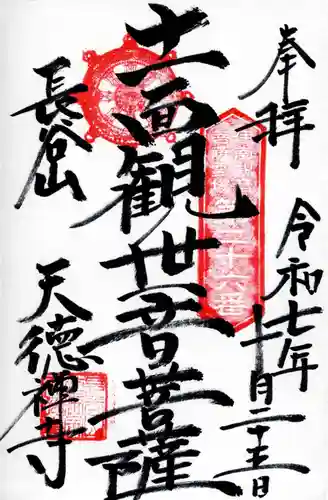 奉拝
令和七年十月二十三日
十一面観世音菩薩
長谷山
天徳禅寺